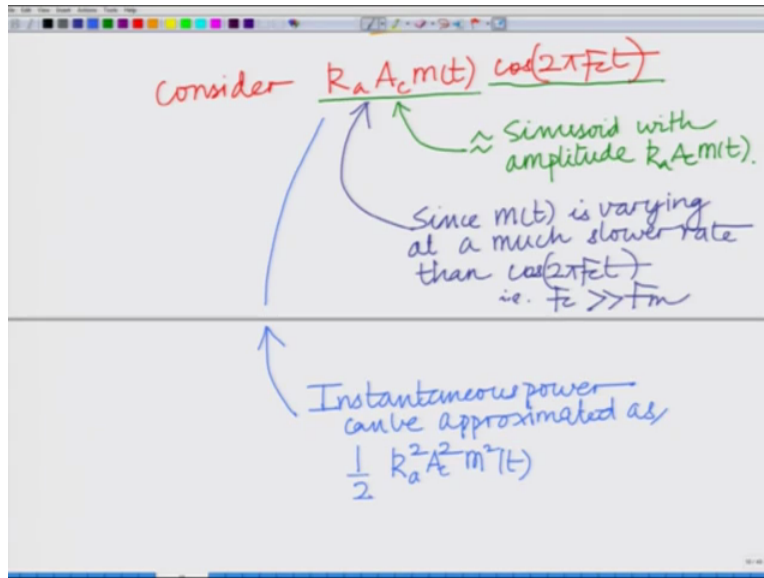 Consider kₐ A_c m(t) cos(2πF_ct)
≈ Sinusoid with
amplitude kₐA_cm(t).
Since m(t) is varying
at a much slower rate
than cos(2πF_ct)
i.e. F_c >> F_m
Instantaneous power
can be approximated as
1/2 kₐ² A_c² m²(t)